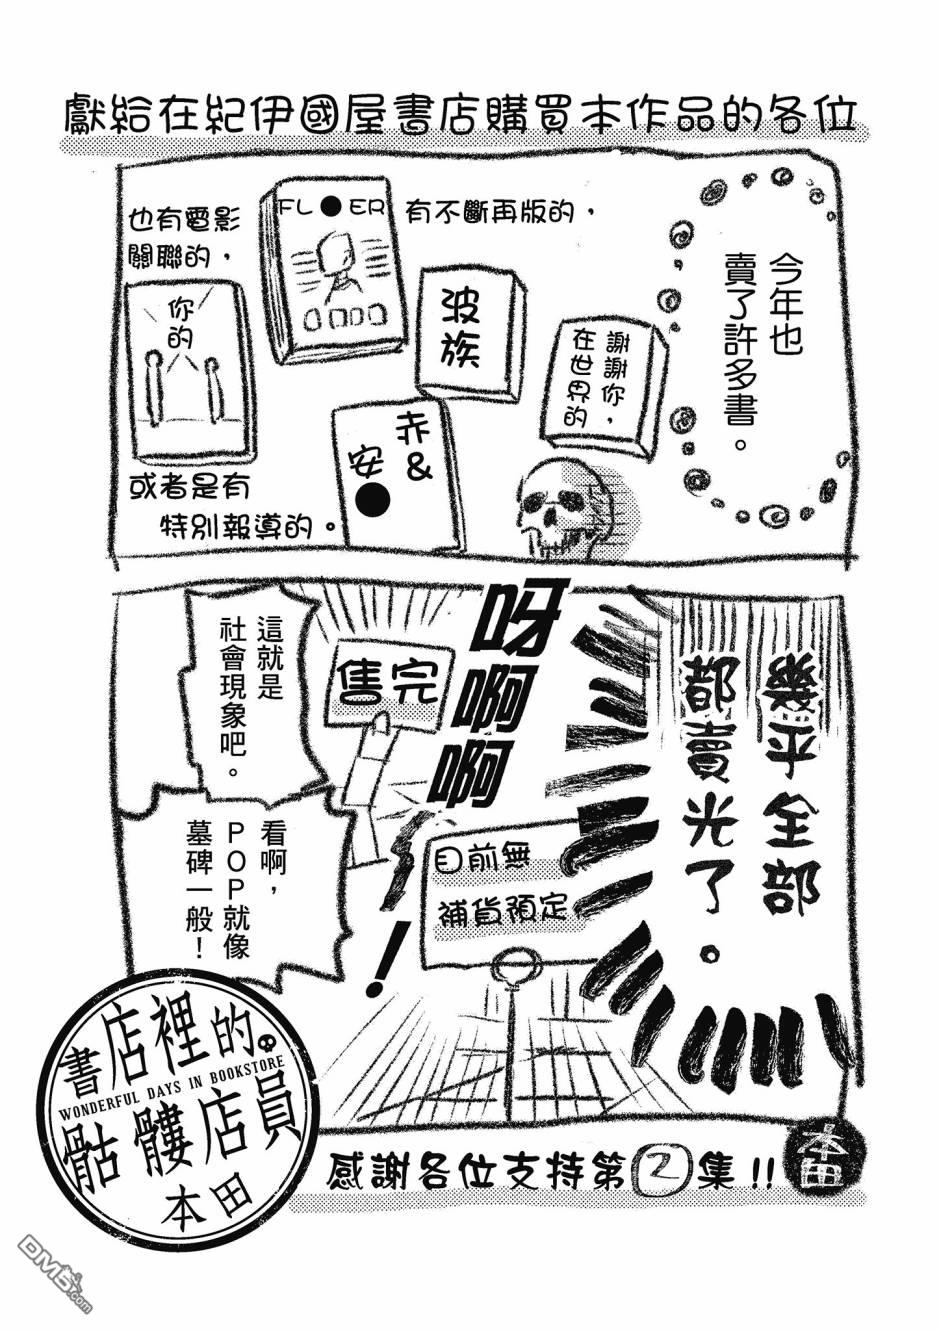 獻給在紀伊國屋書店購買本作品的各位
今年也
賣了許多書。
有不斷再版的，
FL●ER
也有電影
關聯的，
你的
波族
謝謝你，
在世界的
赤&
安●
或者是有
特別報導的。
幾乎全部
都賣光了。
呀啊啊
！
售完
目前無
補貨預定
這就是
社會現象吧。
看啊，
POP就像
墓碑一般！
書店裡的
WONDERFUL DAYS IN BOOKSTORE
骷髏店員
本田
感謝各位支持第2集!!
本田
DM5.com